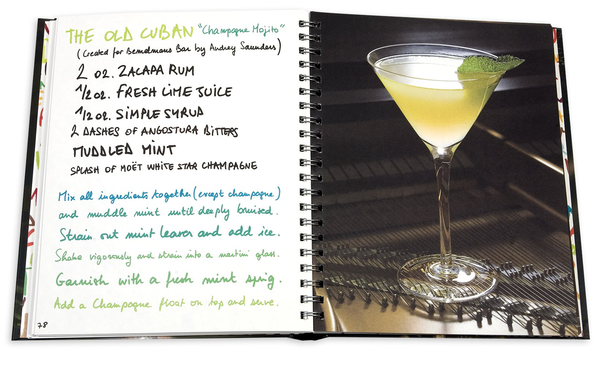 THE OLD CUBAN "Champagne Mojito"
(Created for Bemelmans Bar by Audrey Saunders)
2 oz. ZACAPA RUM
1/2 oz. FRESH LIME JUICE
1/2 oz. SIMPLE SYRUP
2 DASHES OF ANGOSTURA BITTERS
MUDDLED MINT
SPLASH OF MOËT WHITE STAR CHAMPAGNE
Mix all ingredients together (except champagne)
and muddle mint until deeply bruised.
Strain out mint leaves and add ice.
Shake vigorously and strain into a martini glass.
Garnish with a fresh mint sprig.
Add a Champagne float on top and serve.
78